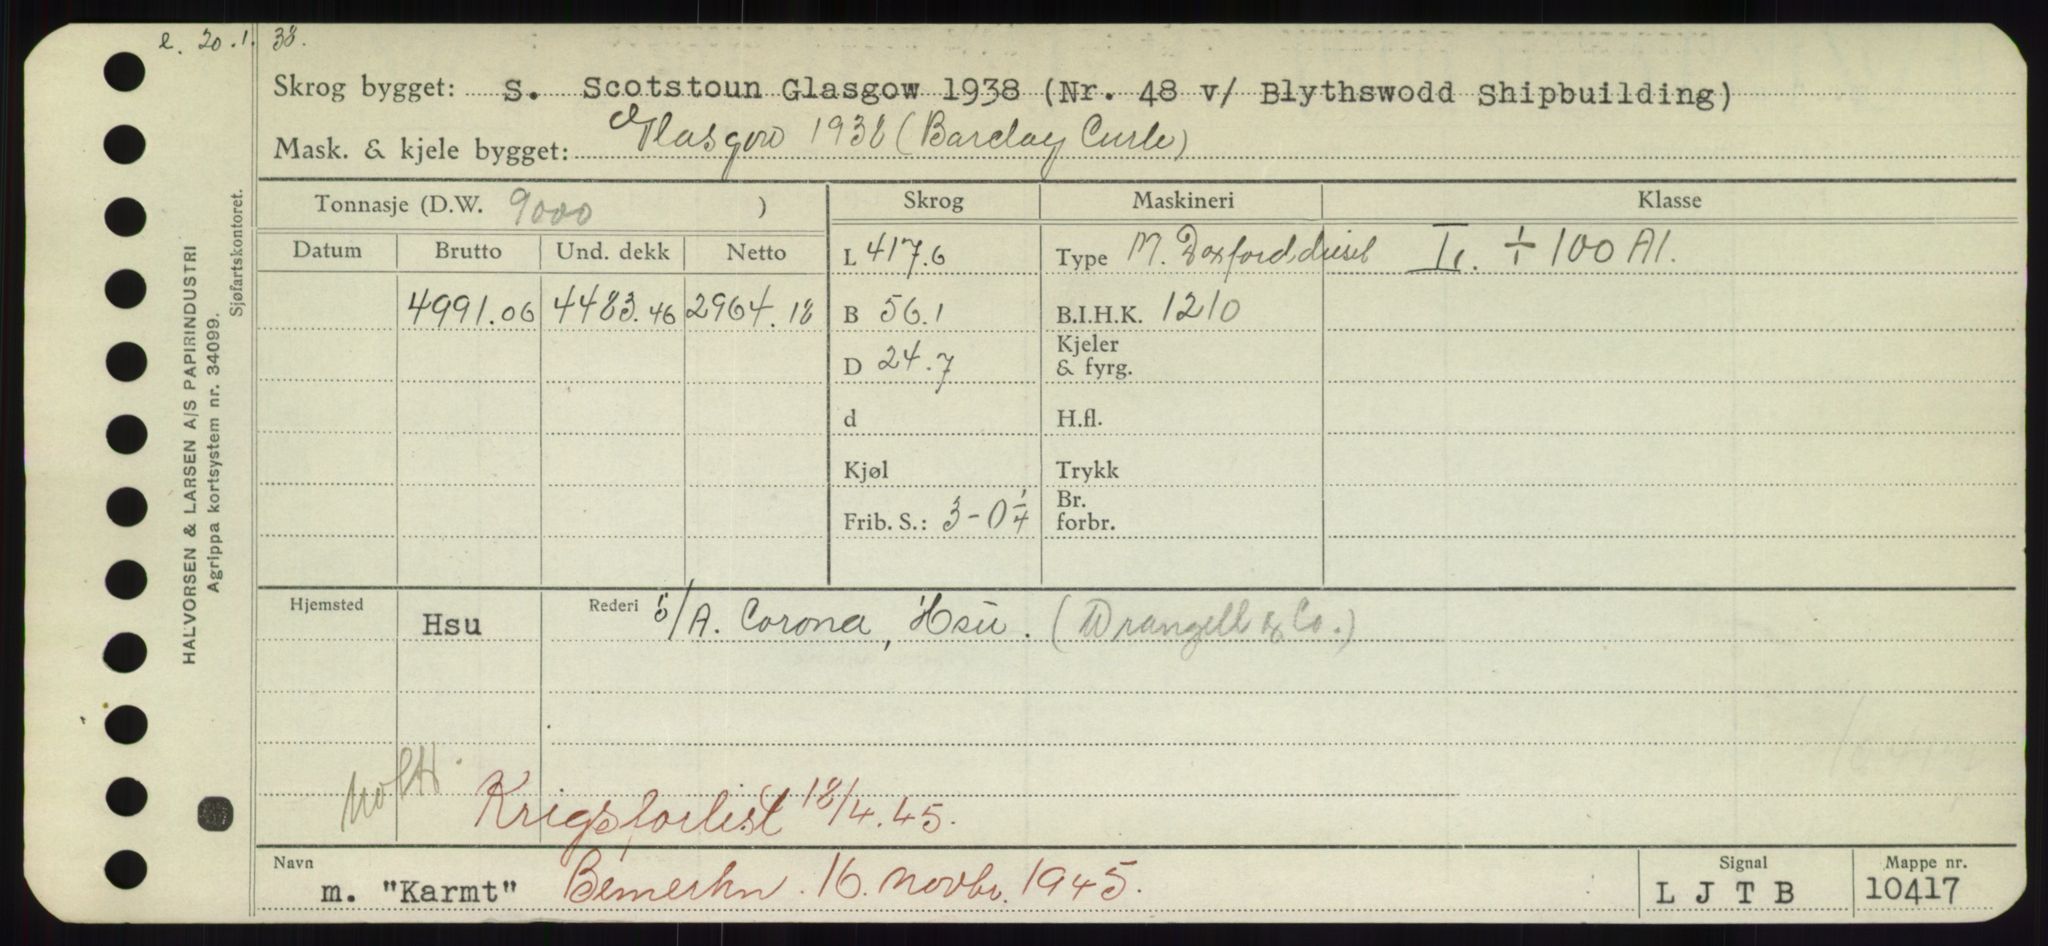 e. 20.1.38.
Skrog bygget: S. Scotstoun Glasgow 1938 (Nr. 48 v/ Blythswodd Shipbuilding)
Mask. & kjele bygget: Glasgow 1938 (Barclay Curle)
Tonnasje (D.W. 9000 ) Skrog Maskineri Klasse
Datum Brutto Und. dekk Netto L 417.6 Type M. Doxford diesel I. ÷ 100 A1.
4991.06 4483.46 2964.18 B 56.1 B.I.H.K. 1210
D 24.7 Kjeler & fyrg.
d H.fl.
Kjøl Trykk
Frib. S.: 3-0 1/4 Br. forbr.
Hjemsted Hsu Rederi S/A. Corona, Hsu. (Wrangell & Co.)
Krigsforlist 18/4.45.
Navn m. "Karmt" Bemerkn. 16. novbr. 1945. Signal L J T B Mappe nr. 10417
HALVORSEN & LARSEN A/S PAPIRINDUSTRI
Agrippa kortsystem nr. 34099.
Sjøfartskontoret.